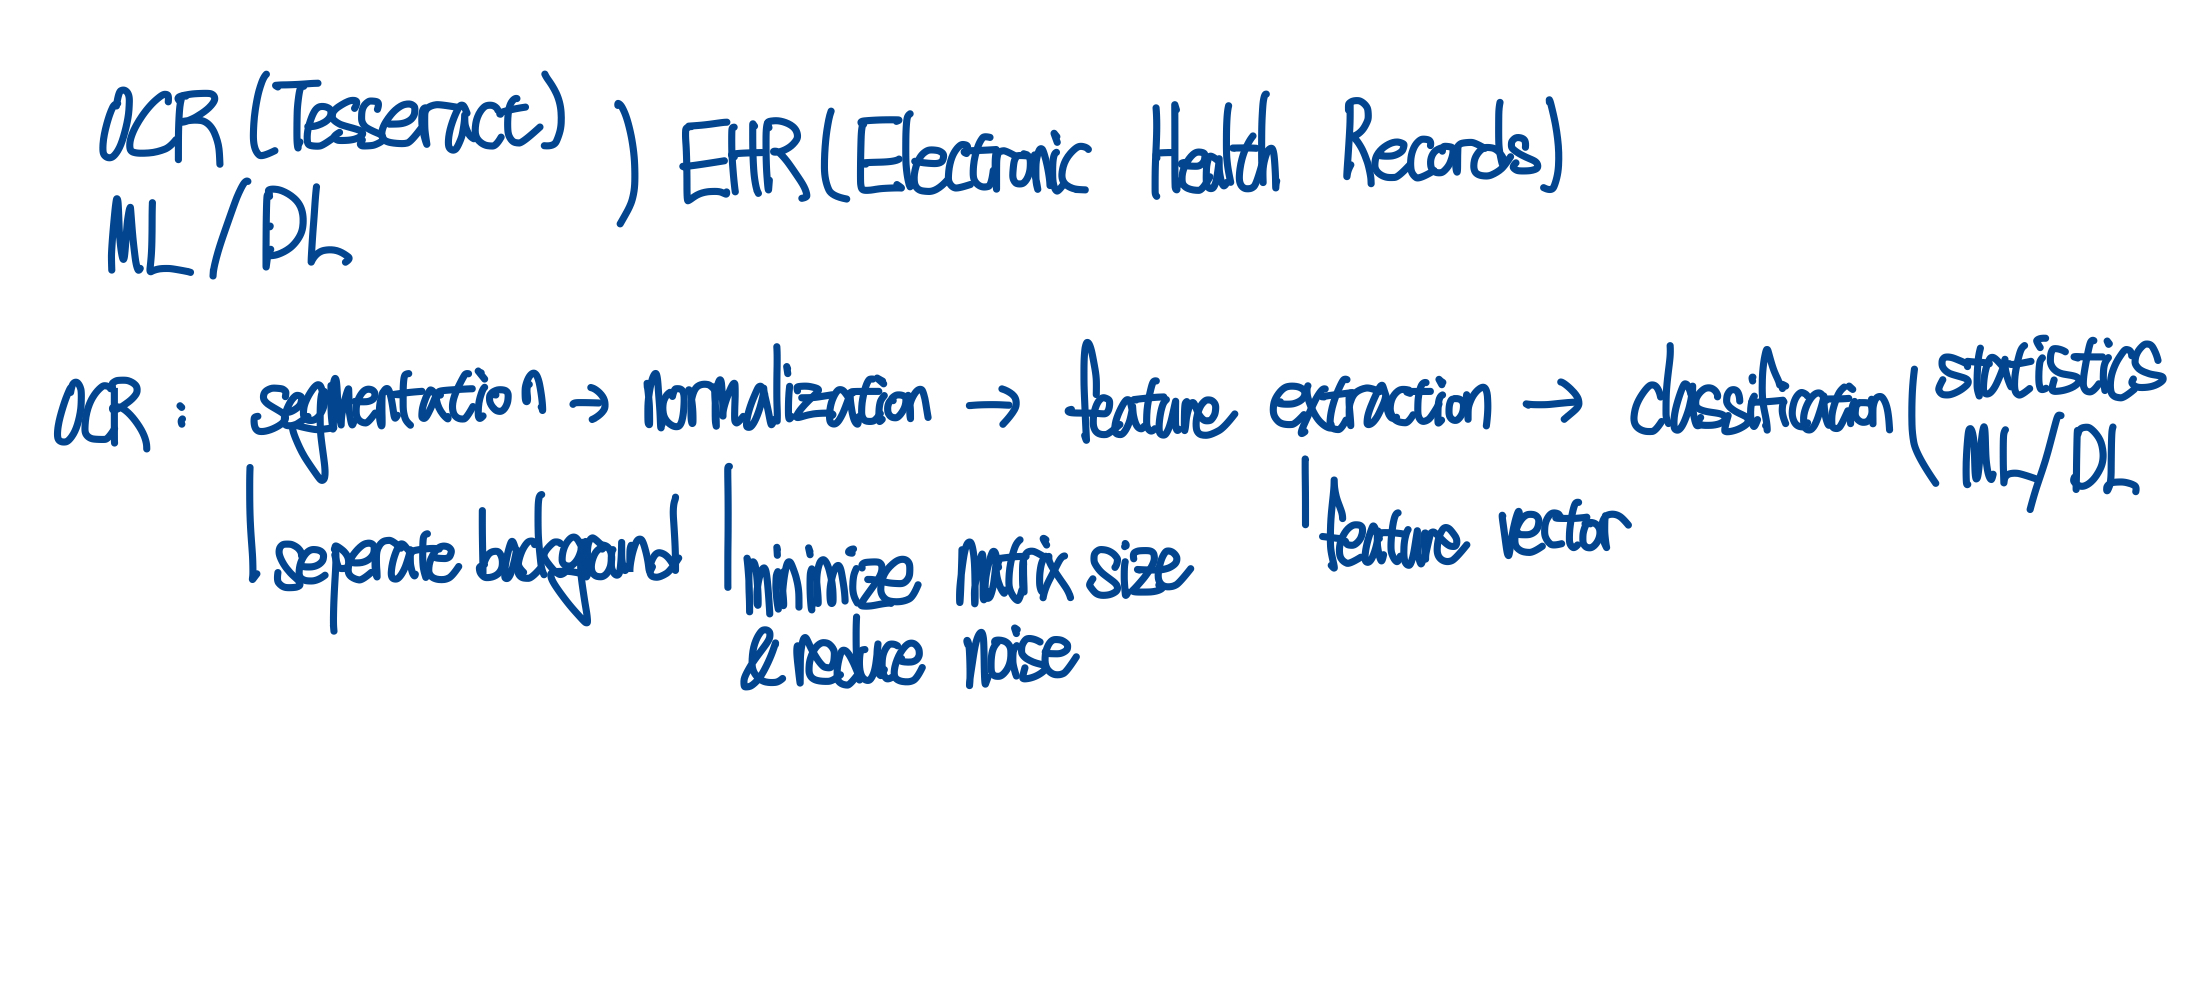 OCR (Tesseract)
ML / DL
) EHR (Electronic Health Records)
OCR : segmentation → normalization → feature extraction → classification ( statistics
ML / DL
seperate background
minimize matrix size
& reduce noise
feature vector